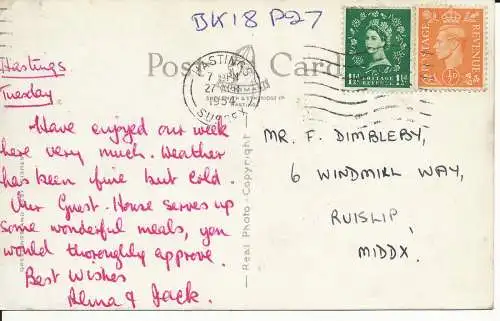 BK18 P27
Post Card
HASTINGS
7 PM
1954
SUSSEX
POSTAGE
REVENUE
1½D
1½D
Hastings
Tuesday
Have enjoyed our week
here very much. Weather
has been fine but cold.
Our Guest-House serves up
some wonderful meals, you
would thoroughly approve.
Best Wishes
Alma & Jack.
— Real Photo - Copyright —
MR. F. DIMBLEBY,
6 WINDMILL WAY,
RUISLIP,
MIDDX.